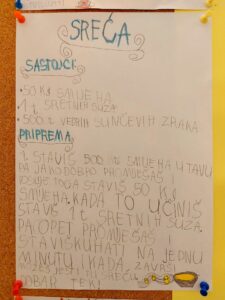 SREĆA
SASTOJCI:
• 50 KG SMIJEHA
• 1 t SRETNIH SUZA
• 500 t VEDRIH SUNČEVIH ZRAKA
PRIPREMA
1. STAVIŠ 500 t SMIJEHA U TAVU
PA JAKO DOBRO PROMIJEŠAŠ
POSLIJE TOGA STAVIŠ 50 KG
SMIJEHA. KADA TO UČINIŠ
STAVIŠ 1 t SRETNIH SUZA.
PA OPET PROMIJEŠAŠ I
STAVIŠ KUHATI NA JEDNU
MINUTU I KADA ZAVRŠI
MOŽEŠ JESTI SREĆU
DOBAR TEK!